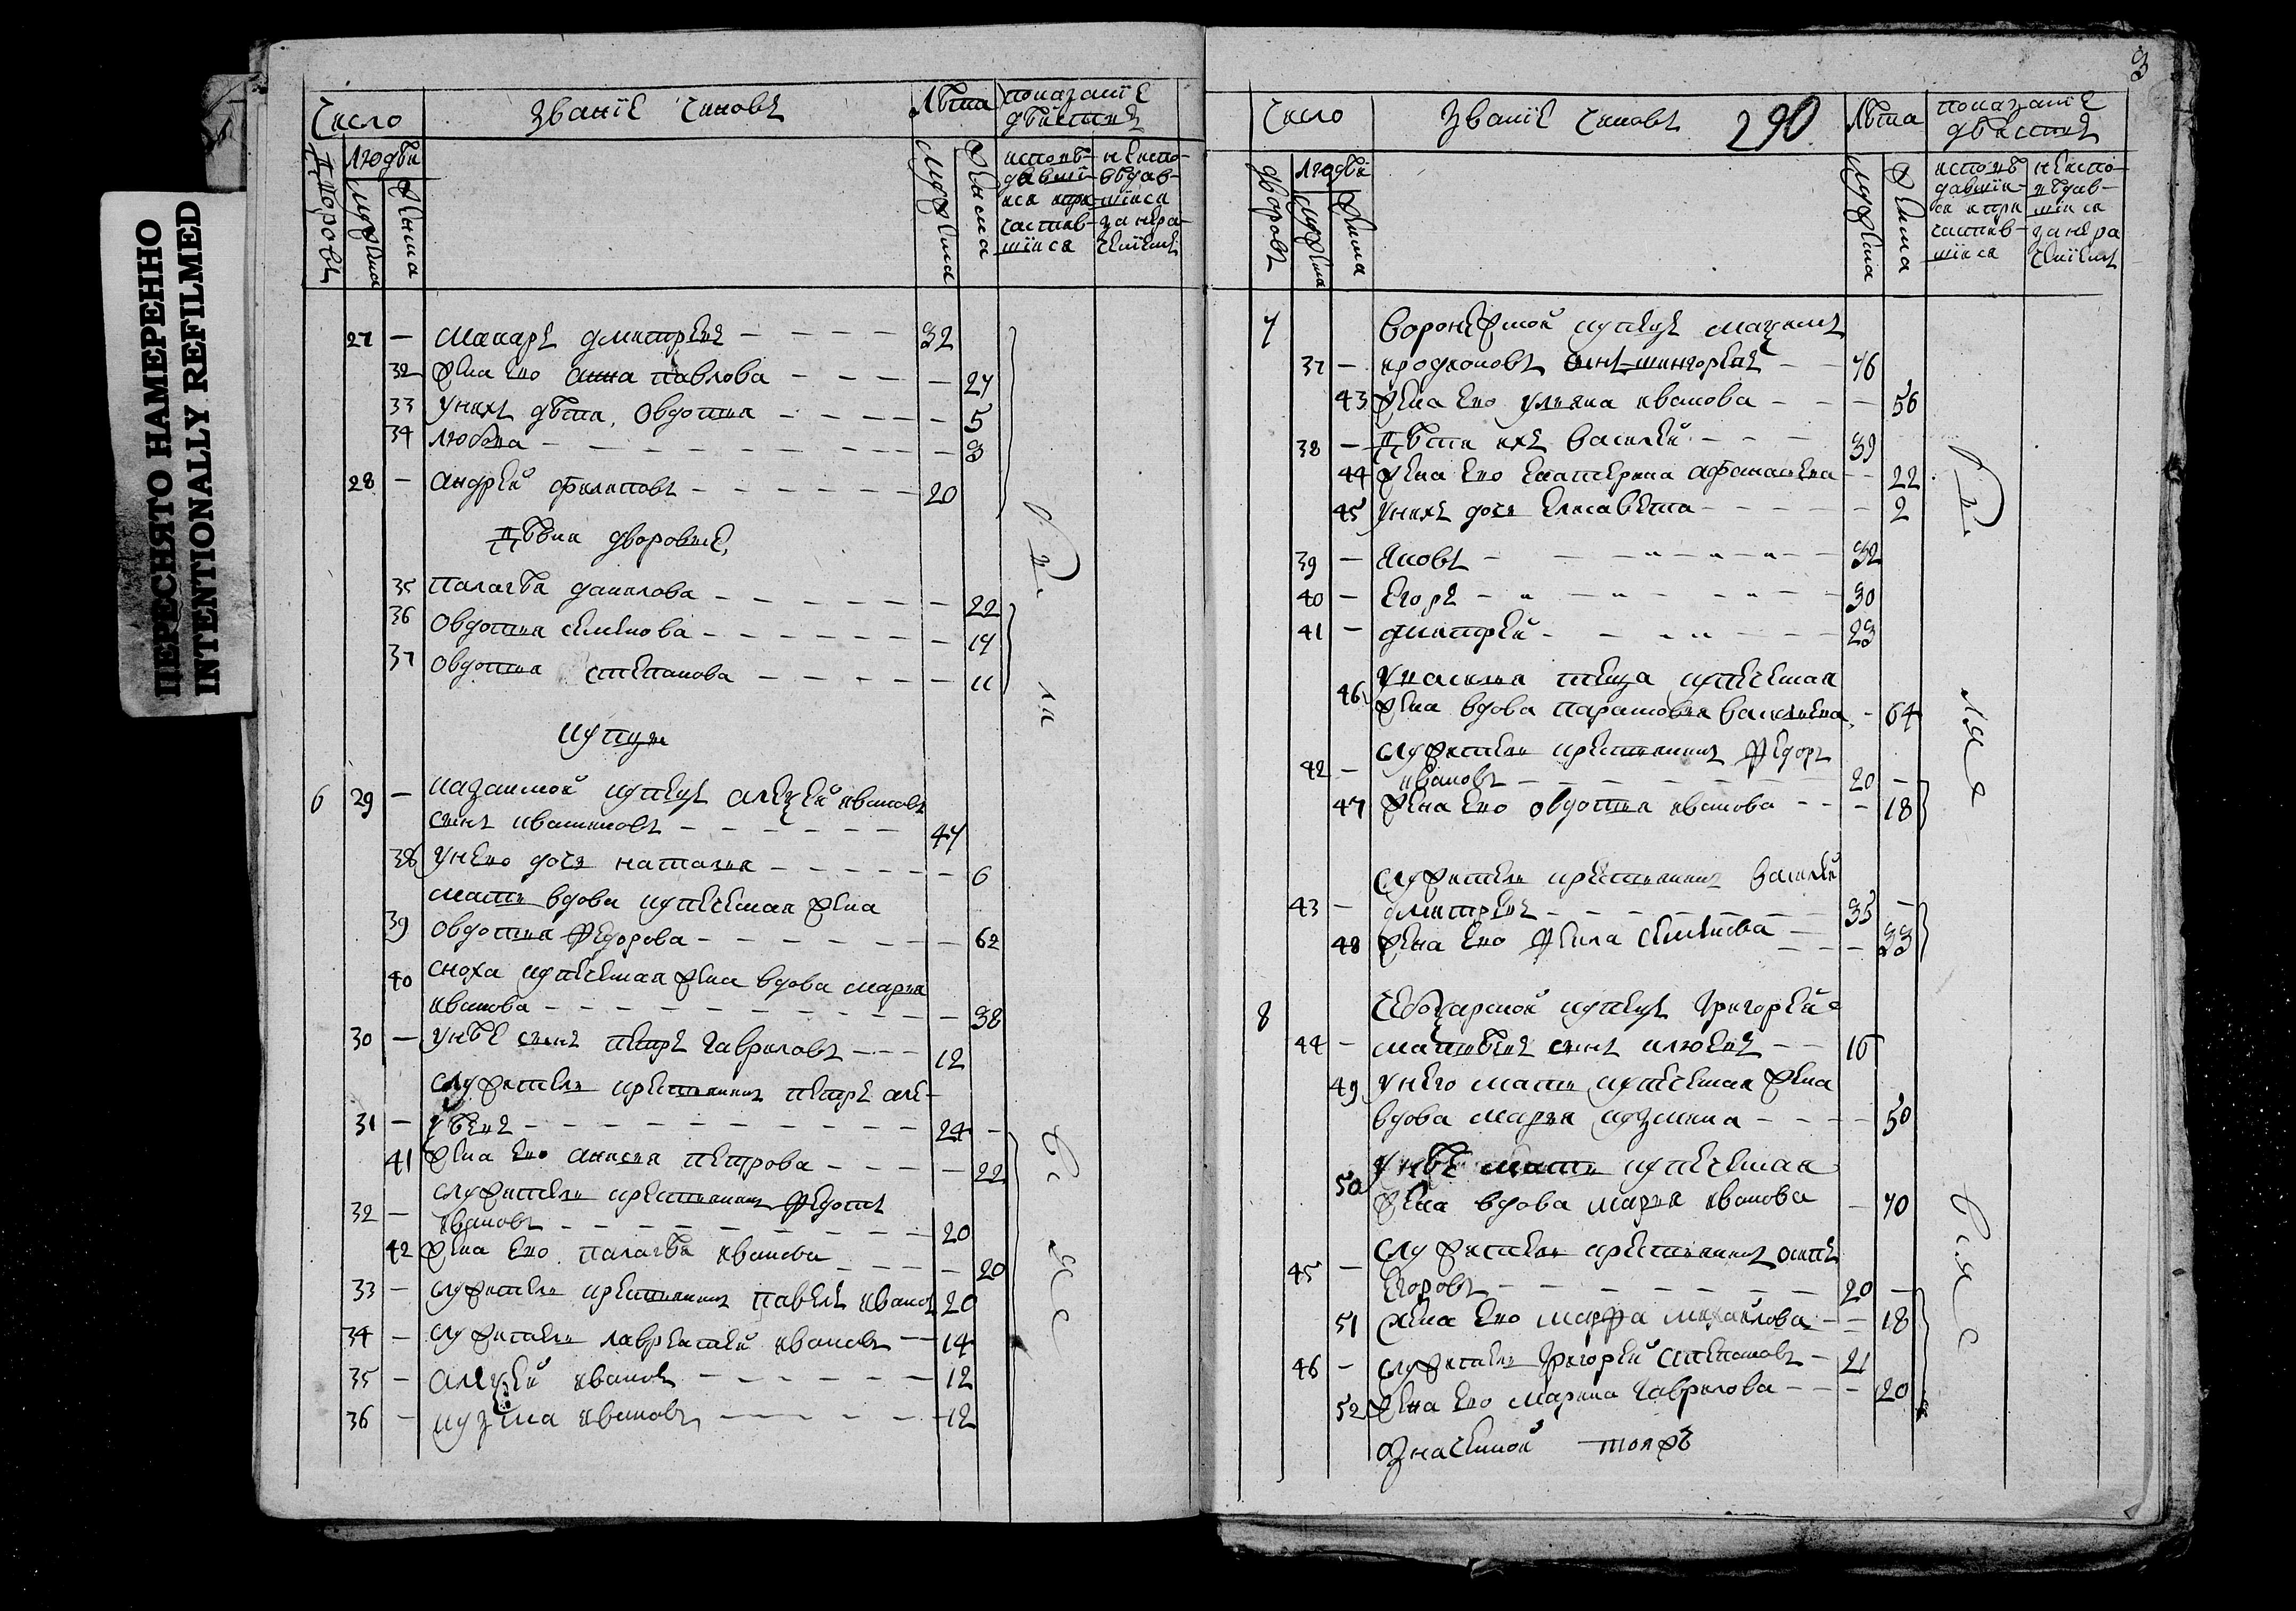 ПЕРЕСНЯТО НАМЕРЕННО
INTENTIONALLY REFILMED
Число Званїе Чиновъ Лѣта показанїе
дѣйствъ
Дворовъ людѣй мужска женска мужска женска
исповѣ- неиспо-
давшї- вѣдав-
иса и при- шїиса
частив- за нера-
шїисаченїемъ
27 — макаръ дмитріевъ — 32
32 жена ево анна павлова — 27
33 у нихъ дѣти, овдотия — 5
34 любовь — 3
28 — андрей филиповъ — 20
Дѣвки дворовые,
35 палагѣя данилова — 22
36 овдотия семенова — 17
37 овдотия степанова — 11
купцы
6 29 — казанской купецъ алеѯей ивановъ
сынъ квашниновъ — 47
38 у нево дочь наталия — 6
мать вдова купеческая жена
39 овдотия федорова — 62
40 сноха купеческая жена вдова мария
иванова — 38
30 — у нѣе сынъ петръ гавриловъ — 12
служитель крестьянинъ петръ але-
31 — ѯѣевъ — 24 —
41 жена ево анисия петрова — 22
служитель крестьянинъ федотъ
32 — ивановъ — 20
42 жена ево палагѣя иванова — 20
33 — служитель крестьянинъ павелъ ивановъ 20
34 — служитель лаврентей ивановъ — 14
35 — алеѯей ивановъ — 12
36 — кузма ивановъ — 12
3
Число Званїе Чиновъ 290 Лѣта показанїе
дѣиствъ
дворовъ людѣй мужска женска мужска женска
исповѣ неиспо-
давшїи- вѣдав-
са и при шїиса
частив- за нера
шїиса ченїемъ
7 воронежской купецъ маѯимъ
37 — продионовъ сынъ — 76
43 жена ево ульяна иванова — 56
38 — Дѣти ихъ василей — 39
44 жена ево екатерина афанасьева — 22
45 у нихъ дочь елисавета — 2
39 — яковъ — 32
40 — егоръ — 30
41 — дмитрей — 23
у василия теща купеческая
46 жена вдова парасковья васильева — 64
служитель крестьянинъ федоръ
42 — ивановъ — 20 —
47 жена ево овдотия иванова — 18
служитель крестьянинъ василей
43 — дмитріевъ — 35 —
48 жена ево фекла семенова — 33
8 чебоѯарской купецъ григорей
44 — матвѣевъ сынъ клюевъ — 16
49 у него мать купеческая жена
вдова мария кузмина — 50
50 у нѣе мать купеческая
жена вдова мария иванова — 70
служитель крестьянинъ осипъ
45 — егоровъ — 20 —
51 жена ево марфа михайлова — 18
46 — служитель григорей степановъ — 21
52 жена ево марина гаврилова — 20
означенной тояжъ